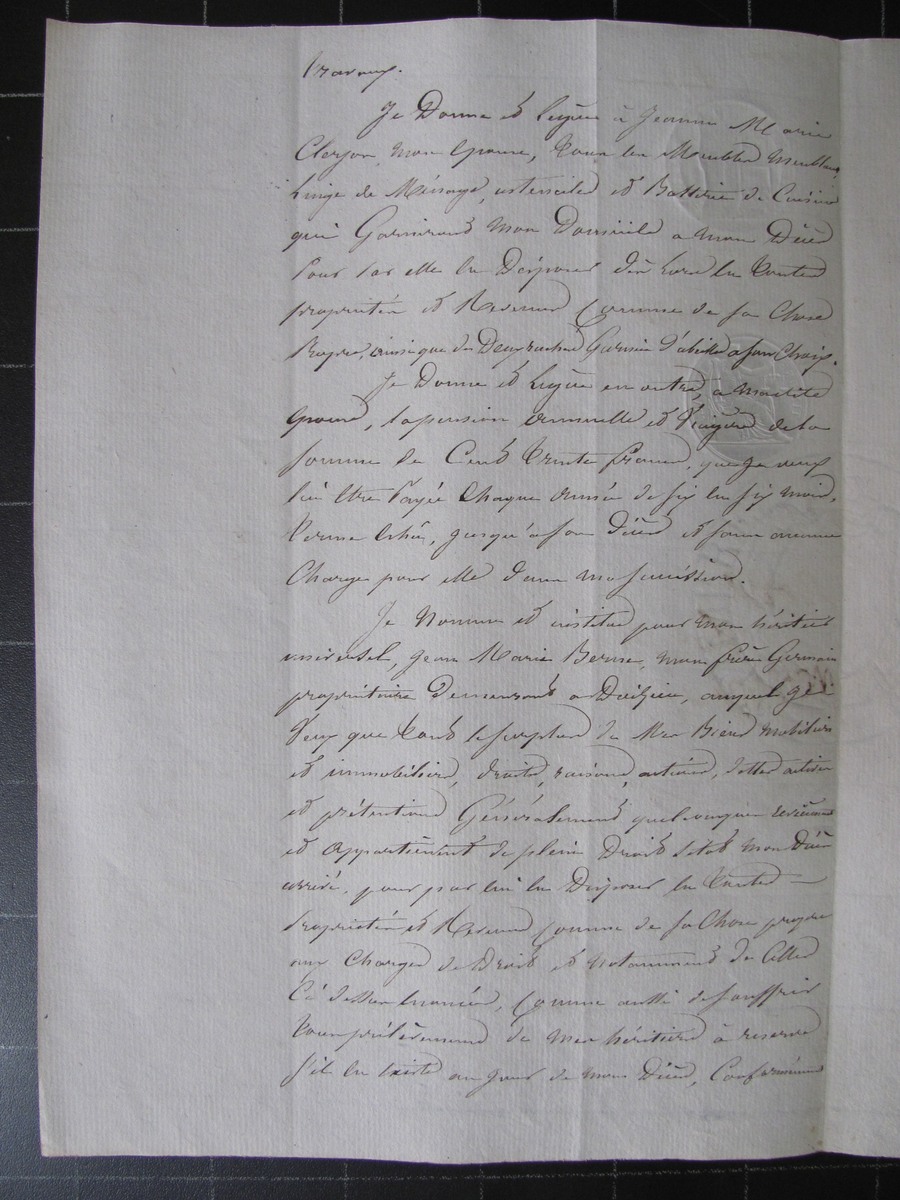 travaux.
Je Donne et Legue à Jeanne Marie
Clerjon, mon Epouse, tous les Meubles Meublans,
Linge de Ménage, ustensiles et Batterie de Cuisine
qui Garniront mon Domicile a mon Décès
Pour par elle en Disposer dès lors en toutes
propriétés et Revenus comme de sa Chose
Propre, ainsi que de Deux ruches Garnies d'abeilles a son Choix.
Je Donne et Legue en outre, a Madite
Epouse, la pension annuelle et Viagère de la
somme de Cent trente francs, que je veux
lui être Payée Chaque année de six en six mois,
terme échu, jusqu'à son Décès et sans aucune
Charge pour elle dans ma succession.
Je Nomme et institue pour mon héritier
universel, Jean Marie Berne, mon frère Germain
propriétaire Demeurant a, auquel je
Veux que tout le surplus de Mes Biens Mobiliers
et immobiliers, droits, raisons, actions, dettes actives
et prétentions Généralement quelconques reviennent
et appartiennent de plein Droit sitôt mon Décès
arrivé, pour par lui en Disposer en toutes
Propriétés et Revenus comme de sa Chose propre
aux Charges de Droit et notamment de Celles
Ci dessus énoncées, Comme aussi de souffrir
tous prélèvements de mes héritiers à reserve
s'il en existe au jour de mon Décès, Conformément